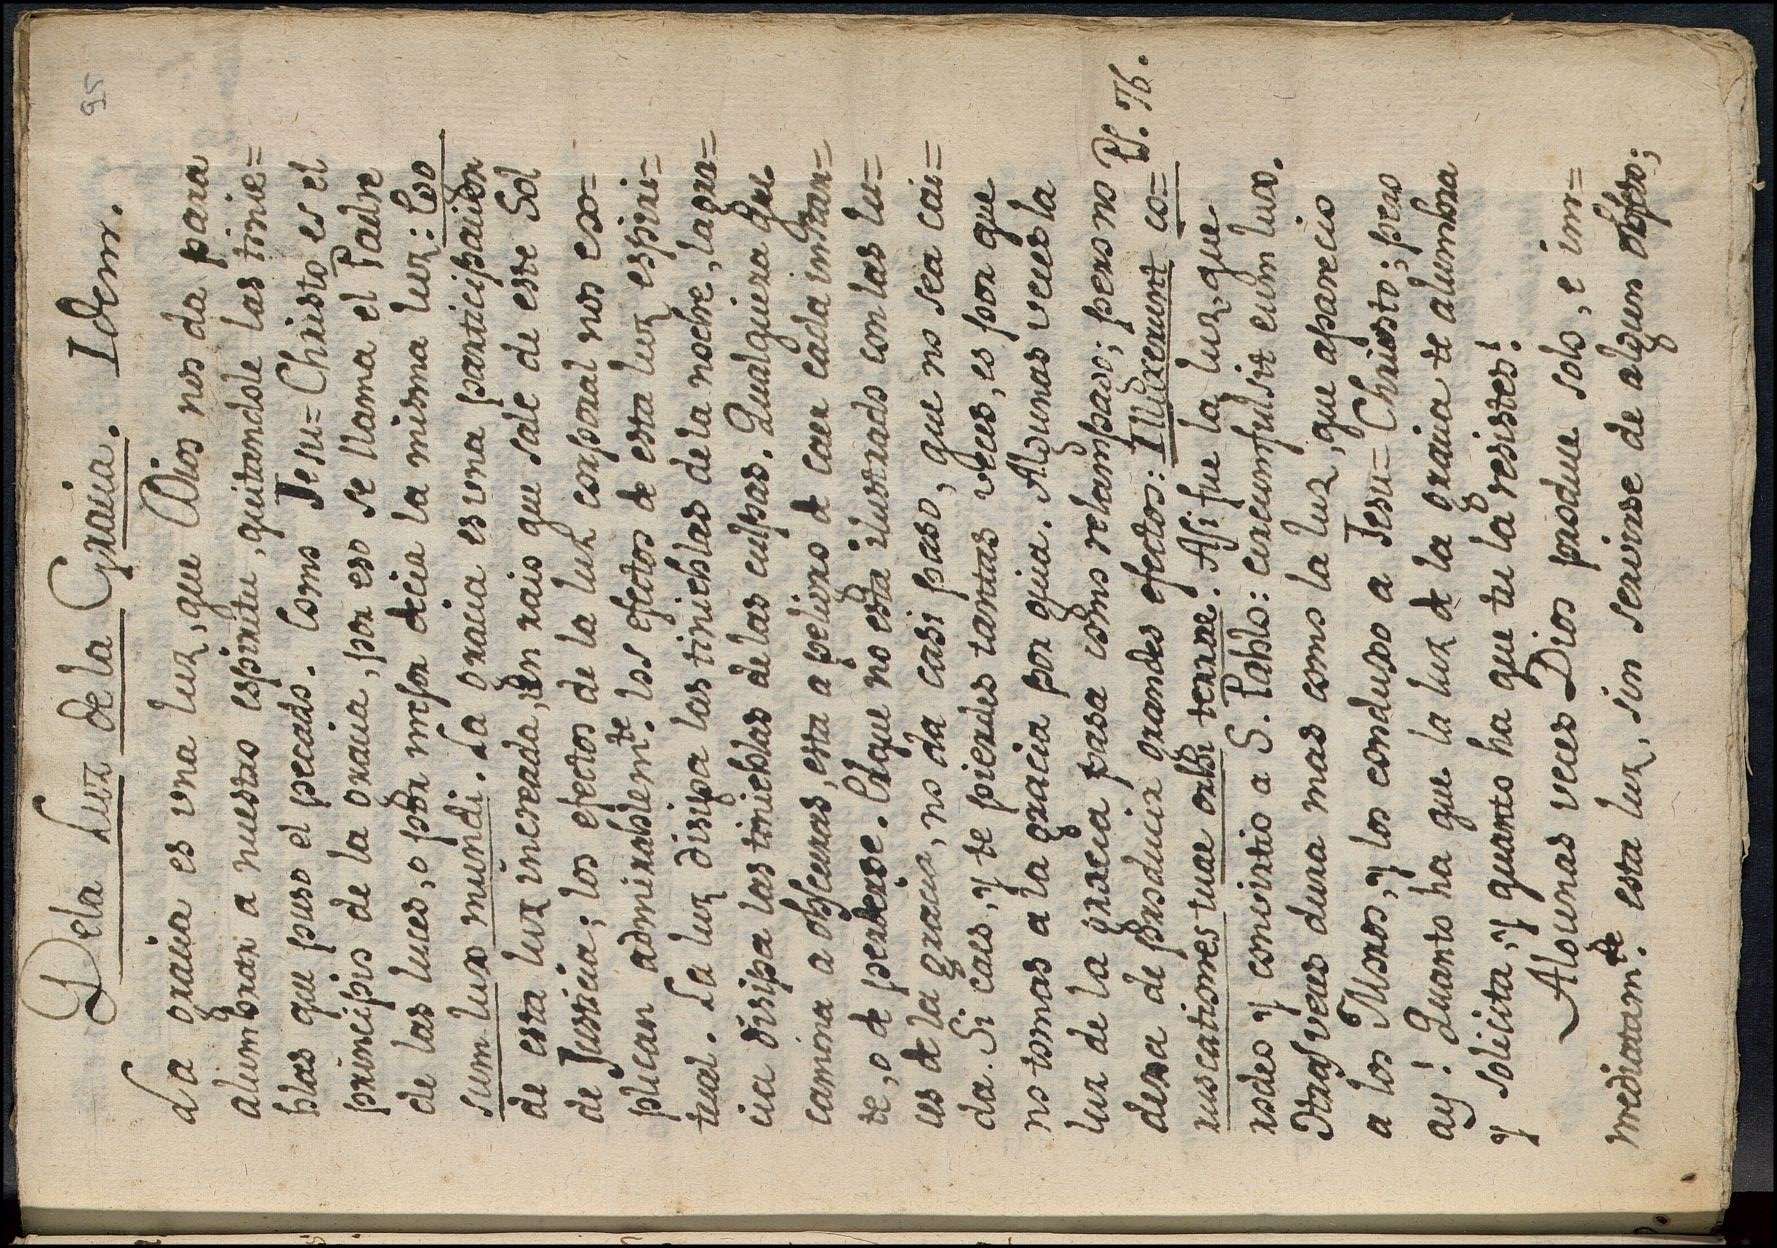 95
De la Luz de la Gracia. Idem.
La gracia es una luz, que Dios nos da para
alumbrar a nuestro espiritu, quitandole las tinie=
blas que puso el pecado. Como Jesu=Christo es el
principio de la gracia, por eso se llama el Padre
de las luces, o por mejor decir la misma luz: Ego
sum lux mundi. La gracia es una participacion
de esta luz increada, Un raio que sale de este Sol
de Justicia; los efectos de la luz corporal nos ex=
plican admirablem.te los efectos de esta luz espiri=
tual. La luz disipa las tinieblas de la noche, la gra=
cia disipa las tinieblas de las culpas. Qualquiera que
camina a obscuras, esta a peligro de caer cada instan=
te, o de perderse. El que no esta ilustrado con las lu=
ces de la gracia, no da casi paso, que no sea cai=
da. Si caes, y te pierdes tantas veces, es por que
no tomas a la gracia por guia. Algunas veces la
luz de la gracia pasa como relampago; pero no
dexa de producir grandes efectos: Illuxerunt co= Ps. 76.
ruscationes tuae orbi terrae. Asi fue la luz que
rodeo y convirtio a S. Pablo: circumfulsit eum lux.
Otras veces dura mas como la luz, que aparecio
a los Magos, y los conduxo a Jesu=Christo; pero
ay! Quanto ha que la luz de la gracia te alumbra
y solicita, y quanto ha que tu la resistes!
Algunas veces Dios produce solo, e im=
mediatam.te esta luz, sin servirse de algun objeto;